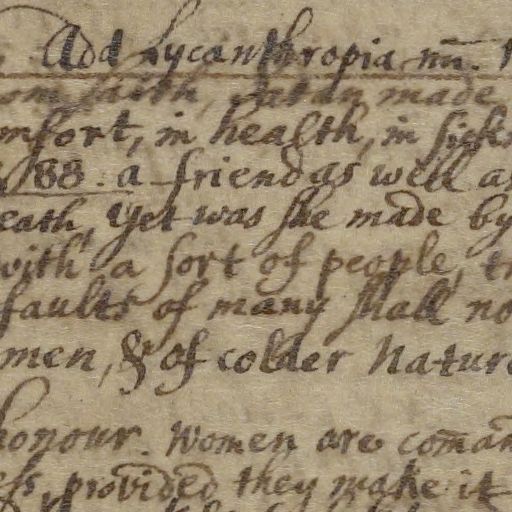 Add Lycanthropia nū.
faith, Satan made
mfort, in health, in sick
88. a friend as well as
eath, Yet was she made by
with a sort of people, t
faults of many shall no
men, & of colder Nature
honour. Women are comān
ess, provided they make it